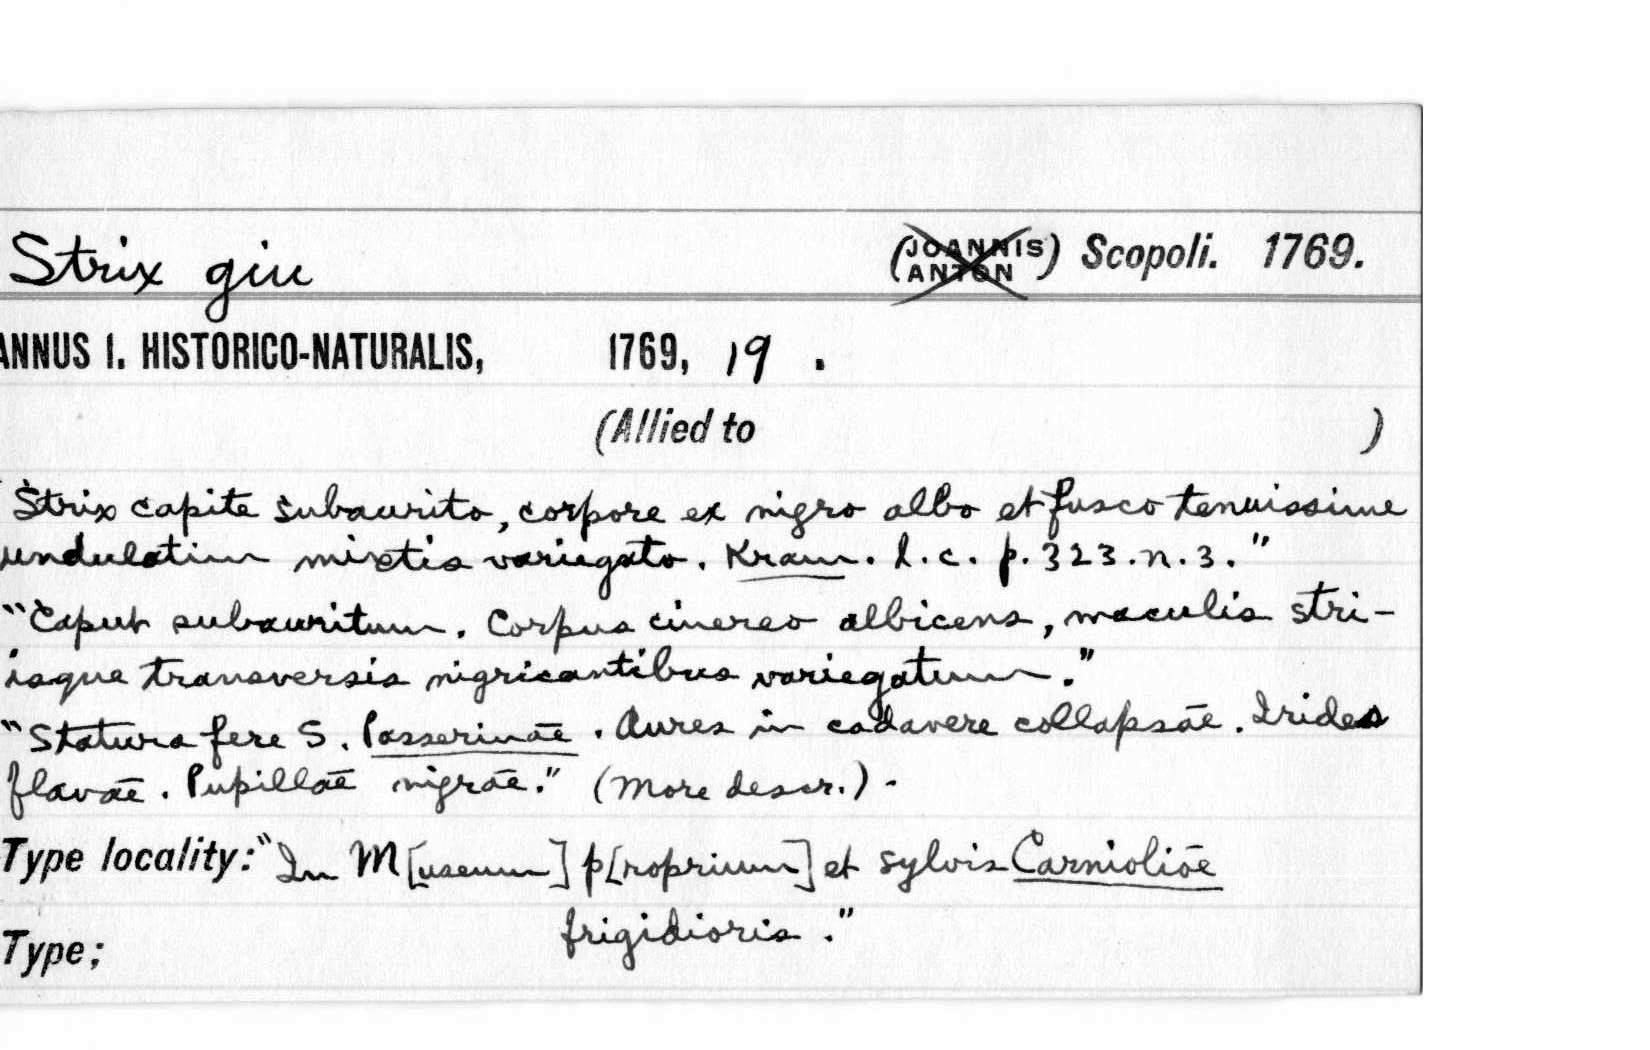 Strix giu (JOANNIS ANTON) Scopoli. 1769.
ANNUS I. HISTORICO-NATURALIS, 1769, 19 .
(Allied to )
Strix capite subaurito, corpore ex nigro albo et fusco tenuissime
undulatim mixtis variegato. Kram. l.c. p.323.n.3."
"Caput subauritum. Corpus cinereo albicens, maculis stri-
isque transversis nigricantibus variegatum."
"Statura fere S. Passerinae. Aures in cadavere collapsae. Irides
flavae. Pupillae nigrae." (More descr.) -
Type locality: "In M[useum] p[roprium] et sylvis Carnioliae
frigidioris."
Type;